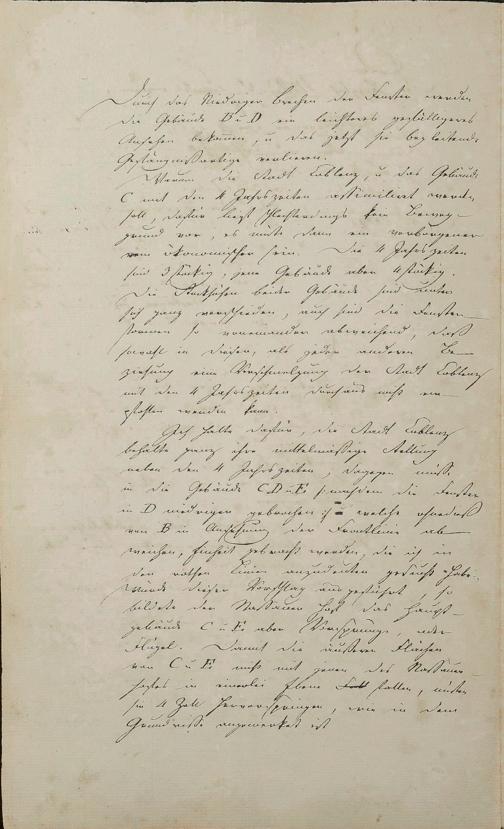 Durch das Niedriger brechen der Fenster werden
die Gebäude B u D ein leichteres gefälligeres
Ansehen bekommen, u das jetzt sie begleitende
Gefängnißartige verlieren.
Warum die Stadt Coblenz, u das Gebäude
C mit den 4 Jahrszeiten assimiliert werden
soll, dafür liegt schlechterdings kein Beweg-
grund vor, es müßte dann ein verborgener
rein ökonomischer sein. Die 4 Jahrszeiten
sind 3 stöckig, jene Gebäude aber 4 stöckig.
Die Stockhöhen beider Gebäude sind unter
sich ganz verschieden, auch sind die Fenster-
formen so voneinander abweichend, daß
sowohl in dieser, als jeder anderen Be-
ziehung eine Verschmelzung der Stadt Coblenz
mit den 4 Jahrszeiten durchaus nicht em-
pfohlen werden kann.
Ich halte dafür, die Stadt Coblenz
behalte ganz ihre mittelmäßige Stellung
neben den 4 Jahrszeiten, dagegen müßte
in die Gebäude C D u E, nachdem die Fenster
in D niedriger gebrochen welche ohnedieß
von B in Ansehung der Frontlinie ab-
weichen, Einheit gebracht werden, die ich in
den rothen Linien anzudeuten gesucht habe.
Würde dieser Vorschlag ausgeführt, so
bildete der Nassauer Hof das Haupt-
gebäude C u E aber Vorsprünge, oder
Flügel. Damit die äußeren Flächen
von C u E nicht mit jenen des Nassauer-
hofes in einerlei Ebene fallen, müßten
sie 4 Zoll hervorspringen, wie in dem
Grundrisse angemerket ist